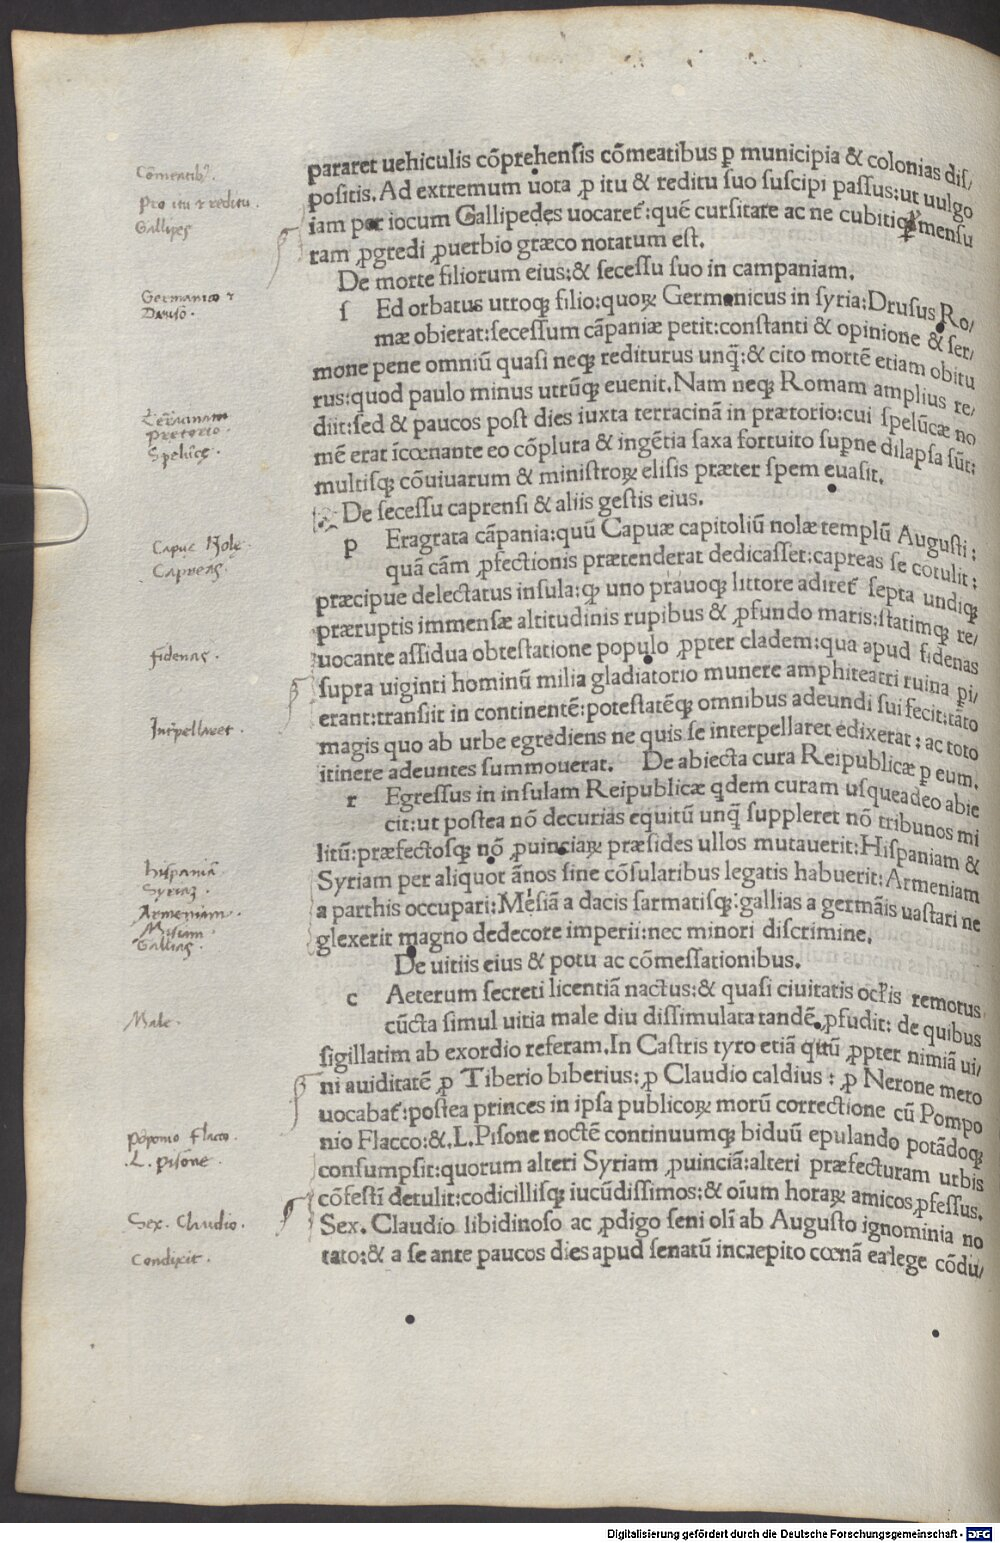 pararet uehiculis cõprehensis cõmeatibus ꝑ municipia & colonias dis/
positis. Ad extremum uota ꝓ itu & reditu suo suscipi passus: ut uulgo
iam per iocum Gallipedes uocaret᷑: quẽ cursitare ac ne cubiti mensu
ram ꝓgredi ꝓuerbio græco notatum est.
De morte filiorum eius: & secessu suo in campaniam.
s Ed orbatus utroqꝫ filio: quoꝝ Germanicus in syria: Drusus Ro/
mæ obierat: secessum cãpaniæ petit: constanti & opinione & ser/
mone pene omniũ quasi neqꝫ rediturus unq̃: & cito mortẽ etiam obitu
rus: quod paulo minus utrũqꝫ euenit. Nam neqꝫ Romam amplius re/
diit: sed & paucos post dies iuxta terracinã in prætorio: cui spelũcæ no
mẽ erat ĩcœnante eo cõplura & ingẽtia saxa fortuito suꝑne dilapsa sũt:
multisqꝫ cõuiuarum & ministroꝝ elisis præter spem euasit.
De secessu caprensi & aliis gestis eius.
p Eragrata cãpania: quũ Capuæ capitoliũ nolæ templũ Augusti:
quã cãm ꝓfectionis prætenderat dedicasset: capreas se cõtulit:
præcipue delectatus insula: qꝫ uno prauoqꝫ littore adiret᷑ septa undiqꝫ
præruptis immensæ altitudinis rupibus & ꝓfundo maris: statimqꝫ re/
uocante assidua obtestatione populo ꝓpter cladem: qua apud fidenas
supra uiginti hominũ milia gladiatorio munere amphiteatri ruina pi/
erant: transiit in continentẽ: potestatẽqꝫ omnibus adeundi sui fecit: tãto
magis quo ab urbe egrediens ne quis se interpellaret edixerat: ac toto
itinere adeuntes summouerat. De abiecta cura Reipublicæ ꝑ eum.
r Egressus in insulam Reipublicæ qdem curam usqueadeo abie
cit: ut postea nõ decurias equitũ unq̃ suppleret nõ tribunos mi
litũ: præfectosqꝫ nõ ꝓuinciaꝝ præsides ullos mutauerit: Hispaniam &
Syriam per aliquot ãnos sine cõsularibus legatis habuerit: Armeniam
a parthis occupari: Mesiã a dacis sarmatisqꝫ: gallias a germãis uastari ne
glexerit magno dedecore imperii: nec minori discrimine.
De uitiis eius & potu ac cõmessationibus.
c Aeterum secreti licentiã nactus: & quasi ciuitatis ocl̃is remotus
cũcta simul uitia male diu dissimulata tandẽ ꝓfudit: de quibus
sigillatim ab exordio referam. In Castris tyro etiã quũ ꝓpter nimiã ui/
ni auiditatẽ ꝓ Tiberio biberius: ꝓ Claudio caldius: ꝓ Nerone mero
uocabat᷑: postea princes in ipsa publicoꝝ morũ correctione cũ Pompo
nio Flacco: &. L. Pisone noctẽ continuumqꝫ biduũ epulando potãdoqꝫ
consumpsit: quorum alteri Syriam ꝓuinciã: alteri præfecturam urbis
cõfestĩ detulit: codicillisqꝫ iucũdissimos: & oĩum horaꝝ amicos ꝓfessus.
Sex. Claudio libidinoso ac ꝓdigo seni olĩ ab Augusto ignominia no
tato: & a se ante paucos dies apud senatũ increpito cœnã ea lege cõdu/
Cõmeatib᷒.
Pro itu & reditu.
Gallipes
Germanico &
Druso.
Terracinam
Pretorio.
Spelũcę.
Capuę Nolę.
Capreas.
fidenas.
Int̃pellaret.
Hispaniã.
Syriã.
Armeniam.
Misiam.
Gallias.
Male.
Põponio Flacco.
.L. pisone.
Sex. Claudio.
Condixit.
Digitalisierung gefördert durch die Deutsche Forschungsgemeinschaft - DFG